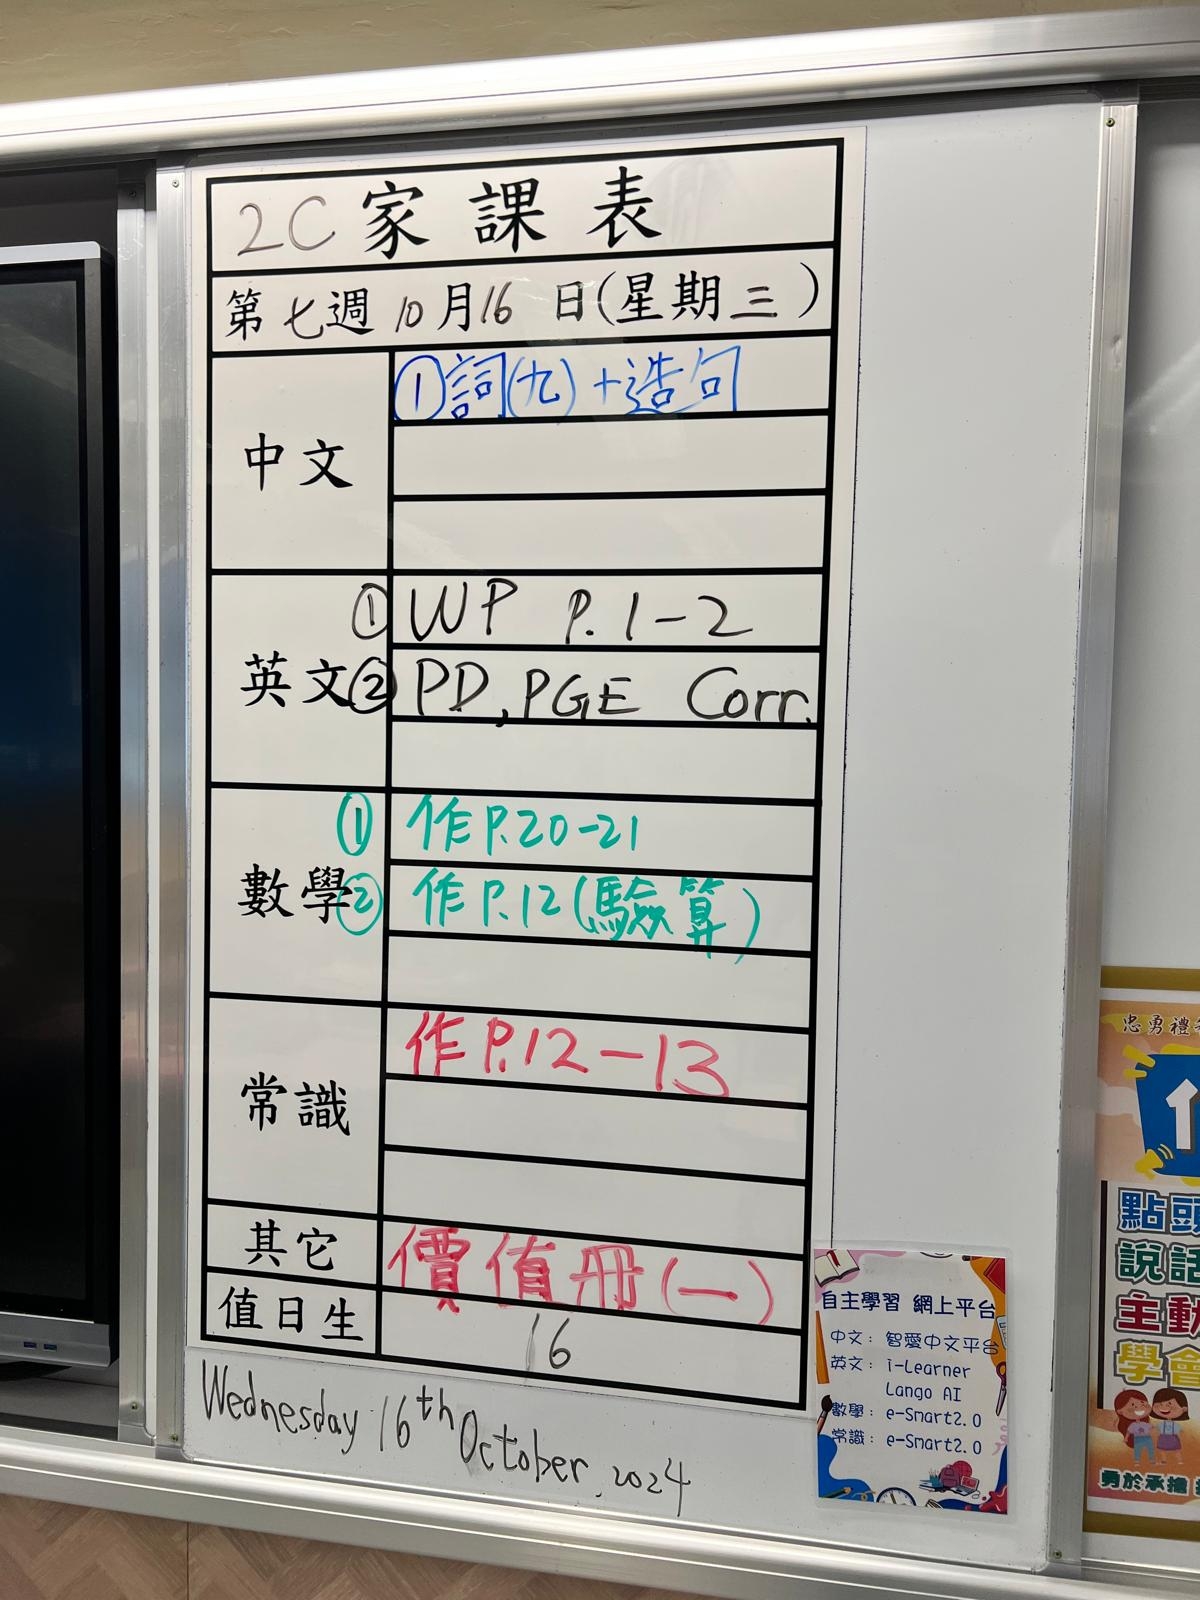 2C家課表
第七週10月16日(星期三)
中文
①詞(九)+造句
英文
①WP P.1-2
②PD,PGE Corr.
數學
①作P.20-21
②作P.12(驗算)
常識
作P.12-13
其它
價值冊(一)
值日生
16
Wednesday 16th October, 2024
自主學習 網上平台
中文: 智愛中文平台
英文: i-Learner
Lango AI
數學: e-Smart2.0
常識: e-Smart2.0
忠勇禮
點頭
說話
主動
學會
勇於承擔